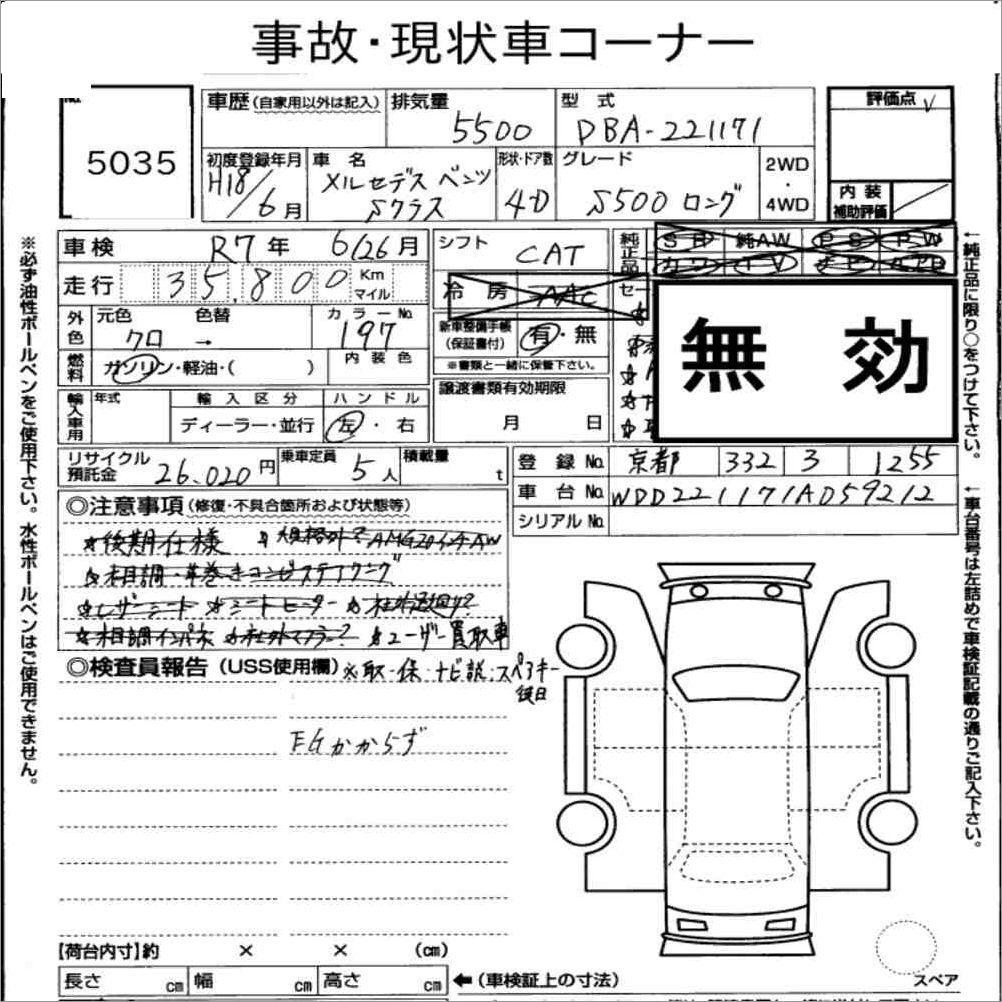 事故・現状車コーナー
5035
車歴 (自家用以外は記入)
排気量
5500
型式
DBA-221171
評価点
内装
補助評価
初度登録年月
H18/6月
車名
メルセデス ベンツ
Sクラス
形状・ドア数
4D
グレード
S500 ロング
2WD
・
4WD
車検
R7年 6/26月
シフト
CAT
純正品
SR 純AW PS PW
カワ TV ナビ エアB
走行
35,800
Km
マイル
冷房
AAC
無効
外色
元色
クロ
色替
→
カラーNo.
197
新車整備手帳
(保証書付)
有・無
※書類と一緒に保管下さい。
燃料
ガソリン・軽油・( )
内装色
譲渡書類有効期限
月 日
輸入車用
年式
輸入区分
ディーラー・並行
ハンドル
左・右
リサイクル
預託金
26,020円
乗車定員
5人
積載量
t
登録No.
京都 332 3 1255
車台No.
WDD221171A059212
シリアルNo.
◎注意事項 (修復・不具合箇所および状態等)
★後期仕様 ★規格外? AMG20インチAW
★相調・革巻きコンビステアリング
★レザーシート ★シートヒーター
★相調インパネ ★社外マフラー? ★ユーザー買取車
◎検査員報告 (USS使用欄)
※取・保・ナビ説・スペアキー
後日
EGかからず
【荷台内寸】約 × × (cm)
長さ cm 幅 cm 高さ cm
←(車検証上の寸法)
スペア
※必ず油性ボールペンをご使用下さい。水性ボールペンはご使用できません。
←純正品に限り○をつけて下さい。
←車台番号は左詰めで車検証記載の通りご記入下さい。